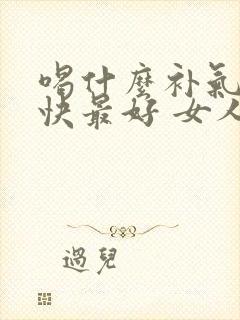 喝什麼补氣
快最好 女人
過兒